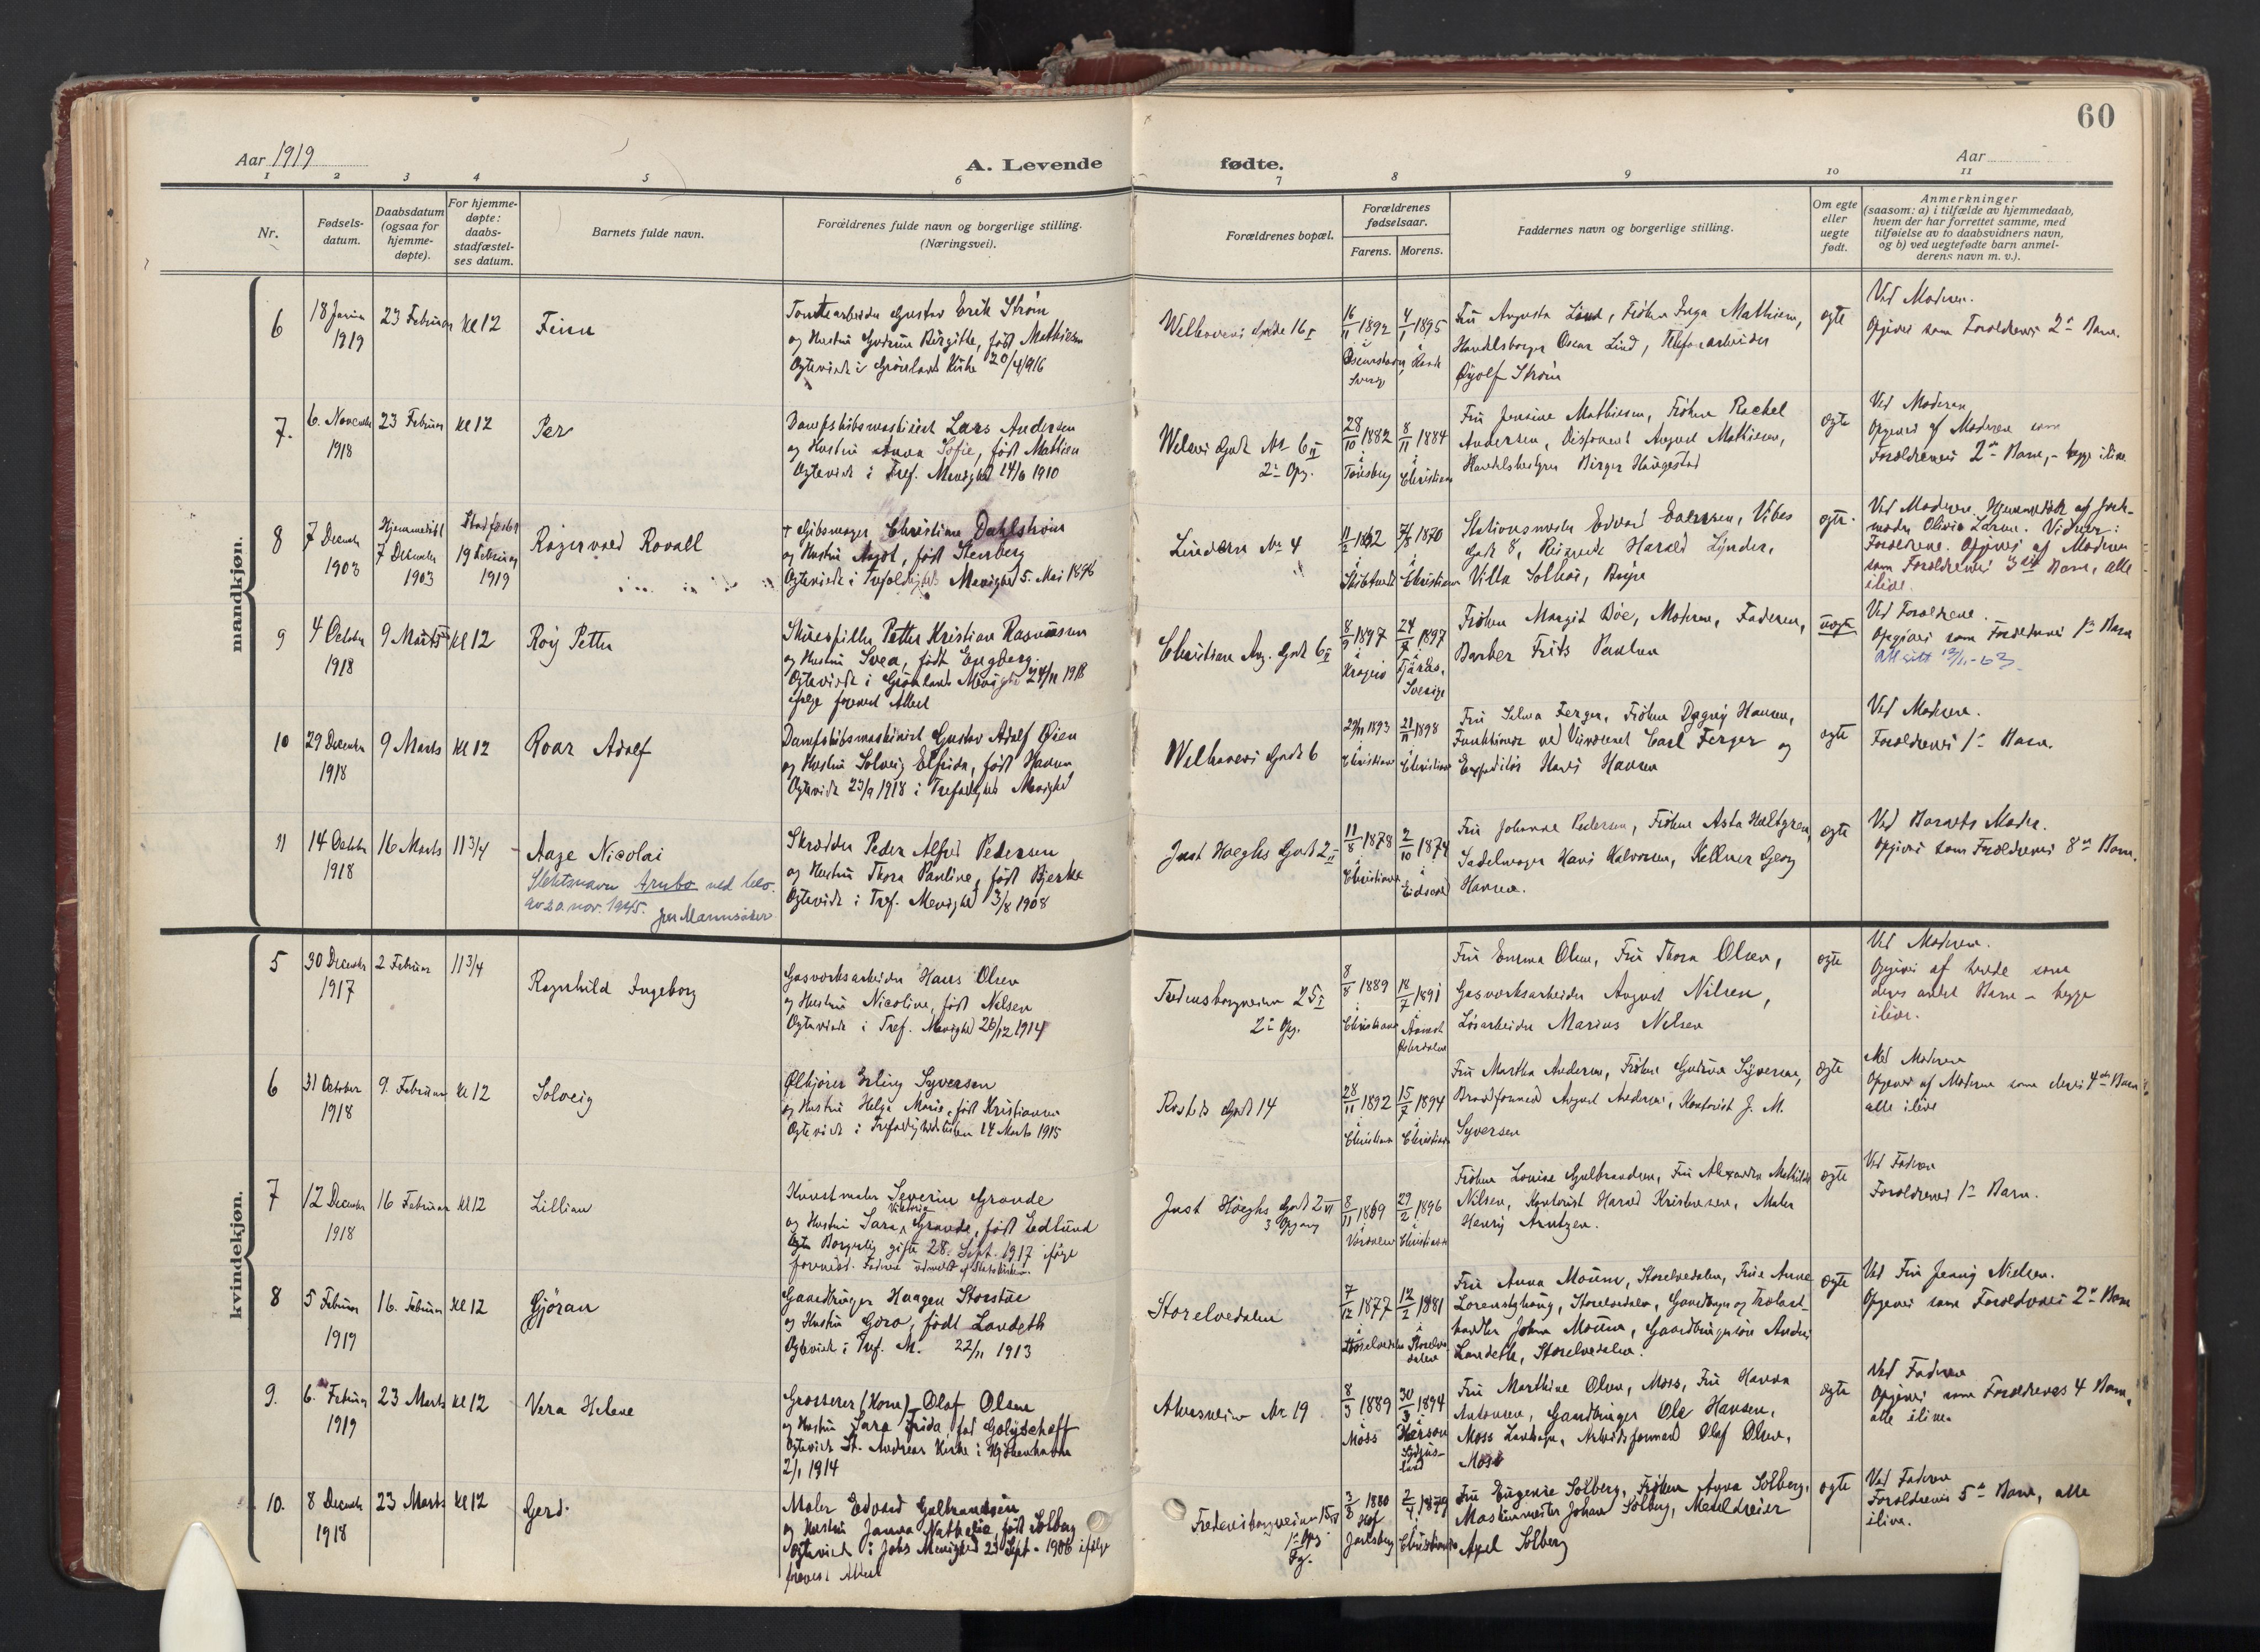 60
Aar 1919
A. Levende fødte.
Aar
1 2 3 4 5 6 7 8 9 10 11
Nr.
Fødsels-
datum.
Daabsdatum
(ogsaa for
hjemme-
døpte).
For hjemme-
døpte:
daabs-
stadfæstel-
ses datum.
Barnets fulde navn.
Forældrenes fulde navn og borgerlige stilling.
(Næringsvei).
Forældrenes bopæl.
Forældrenes
fødselsaar.
Farens. Morens.
Faddernes navn og borgerlige stilling.
Om egte
eller
uegte
født.
Anmerkninger
(saasom: a) i tilfælde av hjemmedaab,
hvem der har forrettet samme, med
tilføielse av to daabsvidners navn,
og b) ved uegtefødte barn anmel-
derens navn m. v.).
mandkjøn.
6
1919
23 Februar
Kl 12
Finn
Gustav Erik Strøm
og Hustru Gudrun Birgitte, født Mathisen
Ogteviede i Grønlands Kirke 20/4 1916
Welhavens Gade 16 I
16/11 1892
4/1 1895
Fru Augusta Lind, Frøken Inga Mathisen,
Oscar Lind,
Strøm
egte
Ved Moderen.
Opgives som Forældrenes 2det Barn.
7.
6. November
1918
23 Februar
Kl 12
Per
Lars Andersen
og Hustru Anna Sofie, født Mathisen
Ogteviede i Tref. Menighed 14/6 1910
Gade Nr 6 II
2n Opg.
28/10 1882
i
Tønsberg
8/11 1884
i
Christiania
Fru Jensine Mathisen, Frøken Rachel
Andersen, Disponent August Mathisen,
Birger Haugestad
egte
Ved Moderen
Opgives af Moderen som
Forældrenes 2det Barn, - begge ilive
8
7 December
1903
Hjemmedøbt
7 December
1903
Stadfæstet
19 Februar
1919
Ragnvald Rovall
Christian Dahlstrøm
og Hustru Aagot, født Stenberg
Ogteviede i Trefoldigheds Menighed 5. Mai 1896
Lindern Nr 4
1870
i
Christiania
Stationsmester Edvard Evensen, Vibes
Gade 8, Harald Lynder,
Villa Solhøi, Bryn
egte.
Ved Moderen. Hjemmedøbt af Jord-
moder Olivia Larsen. Vidner:
Forældrene. Opgives af Moderen
som Forældrenes 3die Barn, alle
ilive.
9
4 October
1918
9 Marts
Kl 12
Roy Petter
Skuespiller Petter Kristian Rasmussen
og Hustru Svea, født Engberg.
Ogteviede i Grønlands Menighed 24/11 1918
ifølge forevist Attest
Christian Aug. Gade 6 II
8/9 1897
i
Kragerø
24/7 1897
i
Sverige
Frøken Margit Bøe, Moderen, Faderen,
Barber Frits Paulsen
uegte
Ved Forældrene.
Opgives som Forældrenes 1ste Barn
Att sitt 12/11-63
10
29 December
1918
9 Marts
Kl 12
Roar Adolf
Gustav Adolf Øien
og Hustru Solveig Elfrida, født Hansen
Ogteviede 23/9 1918 i Trefoldigheds Menighed
Welhavens Gade 6
29/11 1893
i
Christiania
21/11 1898
i
Christiania
Fru Selma Ferger, Frøken Dagny Hansen,
Funktionær ved Carl Ferger og
Expeditør Hans Hansen
egte
Ved Moderen.
Forældrenes 1ste Barn.
11
14 October
1918
16 Marts
11 3/4
Aage Nicolai
Slektsnavn Arnbo ved bev.
av 20. nov. 1945.
Skrædder Peder Alfred Pedersen
og Hustru Thora Pauline, født Bjerke
Ogteviede i Tref. Menighed 3/8 1908
Just Høeghs Gade 2 II
11/8 1878
i
Christiania
2/10 1874
i
Eidsvold
Fru Johanne Pedersen, Frøken Asta Hultgren,
Sadelmager Hans Halvorsen, Kellner Georg
Hansen.
egte
Ved Barnets Moder.
Opgives som Forældrenes 8de Barn.
kvindekjøn.
5
30 December
1917
2 Februar
11 3/4
Ragnhild Ingeborg
Gasverksarbeider Hans Olsen
og Hustru Nicoline, født Nilsen
Ogteviede i Tref. Menighed 26/12 1914
Fredensborgveien 25 I
2n Opg.
8/8 1889
i
Christiania
18/7 1891
i
Aamot
Østerdalen
Fru Emma Olsen, Fru Thora Olsen,
Gasverksarbeider August Nilsen,
Løsarbeider Marius Nilsen
egte
Ved Moderen.
Opgives af hende som
deres andet Barn - begge
ilive.
6
31 October
1918
9. Februar
Kl 12
Solveig
Ølkjører Erling Syversen
og Hustru Helga Marie, født Kristiansen
Ogteviede i Trefoldighedskirken 14 Marts 1915
Gade 14
28/11 1892
i
Christiania
15/7 1894
i
Christiania
Fru Martha Andersen, Frøken Gudrun Syversen,
August Andersen, Kontorist J. M.
Syversen
egte
Med Moderen
Opgives af Moderen som deres 4de Barn
alle ilive
7
12 December
1918
16 Februar
Kl 12
Lillian
Kunstmaler Severin Grande
Viktoria
og Hustru Sara Grande, født Edlund
Borgerlig gifte 28. Sept. 1917 ifølge
forevist. Faderen udmeldt af Statskirken.
Just Høeghs Gade 2 VI
3 Opgang
8/11 1869
i
Værdalen
29/2 1896
i
Christiania
Frøken Louise Gulbrandsen, Fru Alexandra Mathilde
Nilsen, Kontorist Harald Kristensen, Maler
Henrig Arntzen.
egte
Ved Faderen
Forældrenes 1ste Barn.
8
5 Februar
1919
16. Februar
Kl 12
Gjøran
Gaardbruger Haagen Storstue
og Hustru Goro, født Landeth
Ogteviede i Tref. M. 22/11 1913
Storelvedalen
7/12 1877
i
Storelvedalen
12/2 1881
i
Storelve-
dalen
Fru Anna Moum, Storelvedalen, Frue Anne
Storelvedalen, Gaardbruger og Trælast-
handler Johan Moum, Anders
Landeth, Storelvedalen.
egte
Ved Fru Jenny Nielsen.
Opgives som Forældrenes 2det Barn
9.
6. Februar
1919
23 Marts
Kl 12
Vera Helene
Grosserer (Korn) Olaf Olsen
og Hustru Sara Frida, fød Golyschoff
Ogteviede St. Andreas Kirke i Kjøbenhavn
2/1 1914
Akersveien Nr. 19
8/3 1889
i
Moss
30/3 1894
i
Herson
Sydrus-
land
Fru Marthine Olsen, Moss, Fru Hanna
Antonsen, Gaardbruger Ole Hansen,
Moss Landsogn, Arbeidsformand Olaf Olsen,
Moss
egte
Ved Faderen
Opgives som Forældrenes 4 Barn,
alle ilive.
10.
8 December
1918
23 Marts
Kl 12
Gerd.
Maler Edvard Gulbrandsen
og Hustru Janna Nathalia, født Solberg
Ogteviede i Jakobs Menighed 23 Sept. 1906 ifølge
forevist Attest
Fredensborgveien 15
1ste Opg
3/8 1880
Hof
Jarlsberg
2/4 1879
i
Christiania
Fru Eugenie Solberg, Frøken Anna Solberg,
Maskinmester Johan Solberg, Metaldreier
Axel Solberg
egte
Ved Faderen
Forældrenes 5te Barn, alle
ilive.